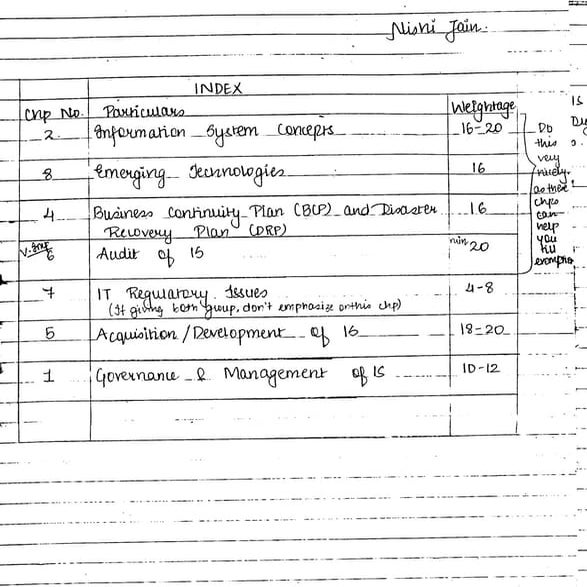 Nishi Jain.
INDEX
Chp No. Particulars Weightage
2. Information System Concepts 16-20
8 Emerging Technologies 16
4 Business Continuity Plan (BCP) and Disaster 16
Recovery Plan (DRP)
V. Imp
6 Audit of IS min 20
7 IT Regulatory Issues 4-8
(If giving both group, don't emphasize on this chp)
5 Acquisition / Development of IS 18-20
1 Governance & Management of IS 10-12
Do
this
very
nicely.
as these
chps
can
help
you
till
exemption
IS